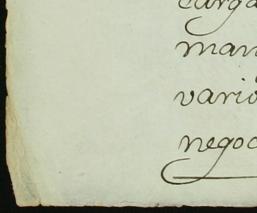 carga
man
vario
negoc